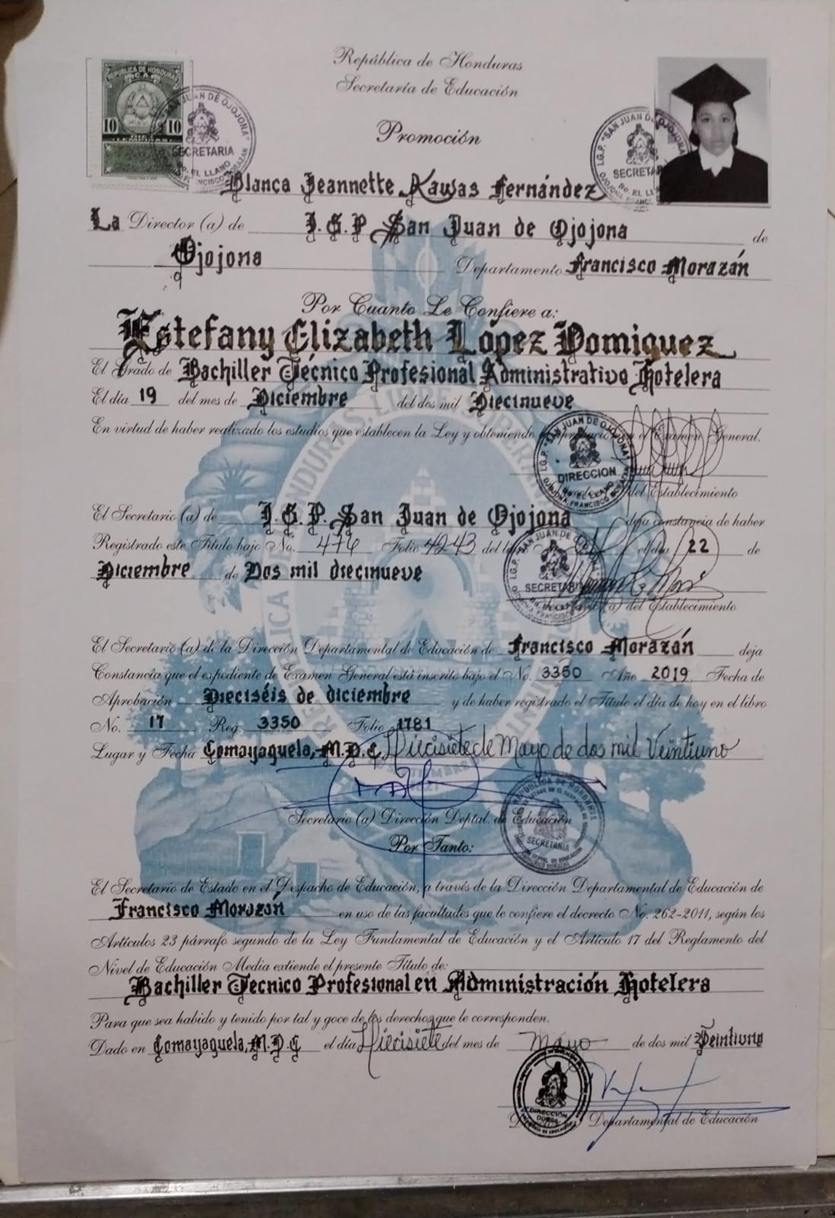 República de Honduras
Secretaría de Educación
Promoción
REPUBLICA DE HONDURAS
C.A.
10 10
"SAN JUAN DE OJOJONA"
SECRETARIA
Bo. EL LLANO
I.G.P. "SAN JUAN DE OJOJONA"
SECRETARIA
Blanca Jeannette Kawas Fernández
La Director (a) de I.G.P San Juan de Ojojona de
Ojojona Departamento Francisco Morazán
Por Cuanto Le Confiere a:
Estefany Elizabeth López Domiguez
El Grado de Bachiller Técnico Profesional Administrativo Hotelera
El día 19 del mes de Diciembre del dos mil Diecinueve
En virtud de haber realizado los estudios que establecen la Ley y obteniendo el Examen General.
I.G.P. "SAN JUAN DE OJOJONA"
DIRECCION
OJOJONA, FRANCISCO MORAZAN
del Establecimiento
El Secretario (a) de I.G.P. San Juan de Ojojona deja constancia de haber
Registrado este Título bajo No. 476 Folio 4243 del el día 22 de
Diciembre de Dos mil diecinueve
I.G.P. "SAN JUAN DE OJOJONA"
SECRETARIA
(a) del Establecimiento
El Secretario (a) de la Dirección Departamental de Educación de Francisco Morazán deja
Constancia que el expediente de Examen General está inscrito bajo el No. 3350 Año 2019 Fecha de
Aprobación Dieciséis de diciembre y de haber registrado el Título el día de hoy en el libro
No. 17 Reg. 3350 Folio 1781
Lugar y Fecha Comayaguela, M.D.C, Diecisiete de Mayo de dos mil Veintiuno
REPUBLICA DE HONDURAS
SECRETARIA
Secretario (a) Dirección Deptal. de Educación
Por Tanto:
El Secretario de Estado en el Despacho de Educación, a través de la Dirección Departamental de Educación de
Francisco Morazán en uso de las facultades que le confiere el decreto No. 262-2011, según los
Artículos 23 párrafo segundo de la Ley Fundamental de Educación y el Artículo 17 del Reglamento del
Nivel de Educación Media extiende el presente Título de:
Bachiller Técnico Profesional en Administración Hotelera
Para que sea habido y tenido por tal y goce de los derechos que le corresponden.
Dado en Comayaguela, M.D.C el día Diecisiete del mes de Mayo de dos mil Veintiuno
DIRECCION
Departamental de Educación